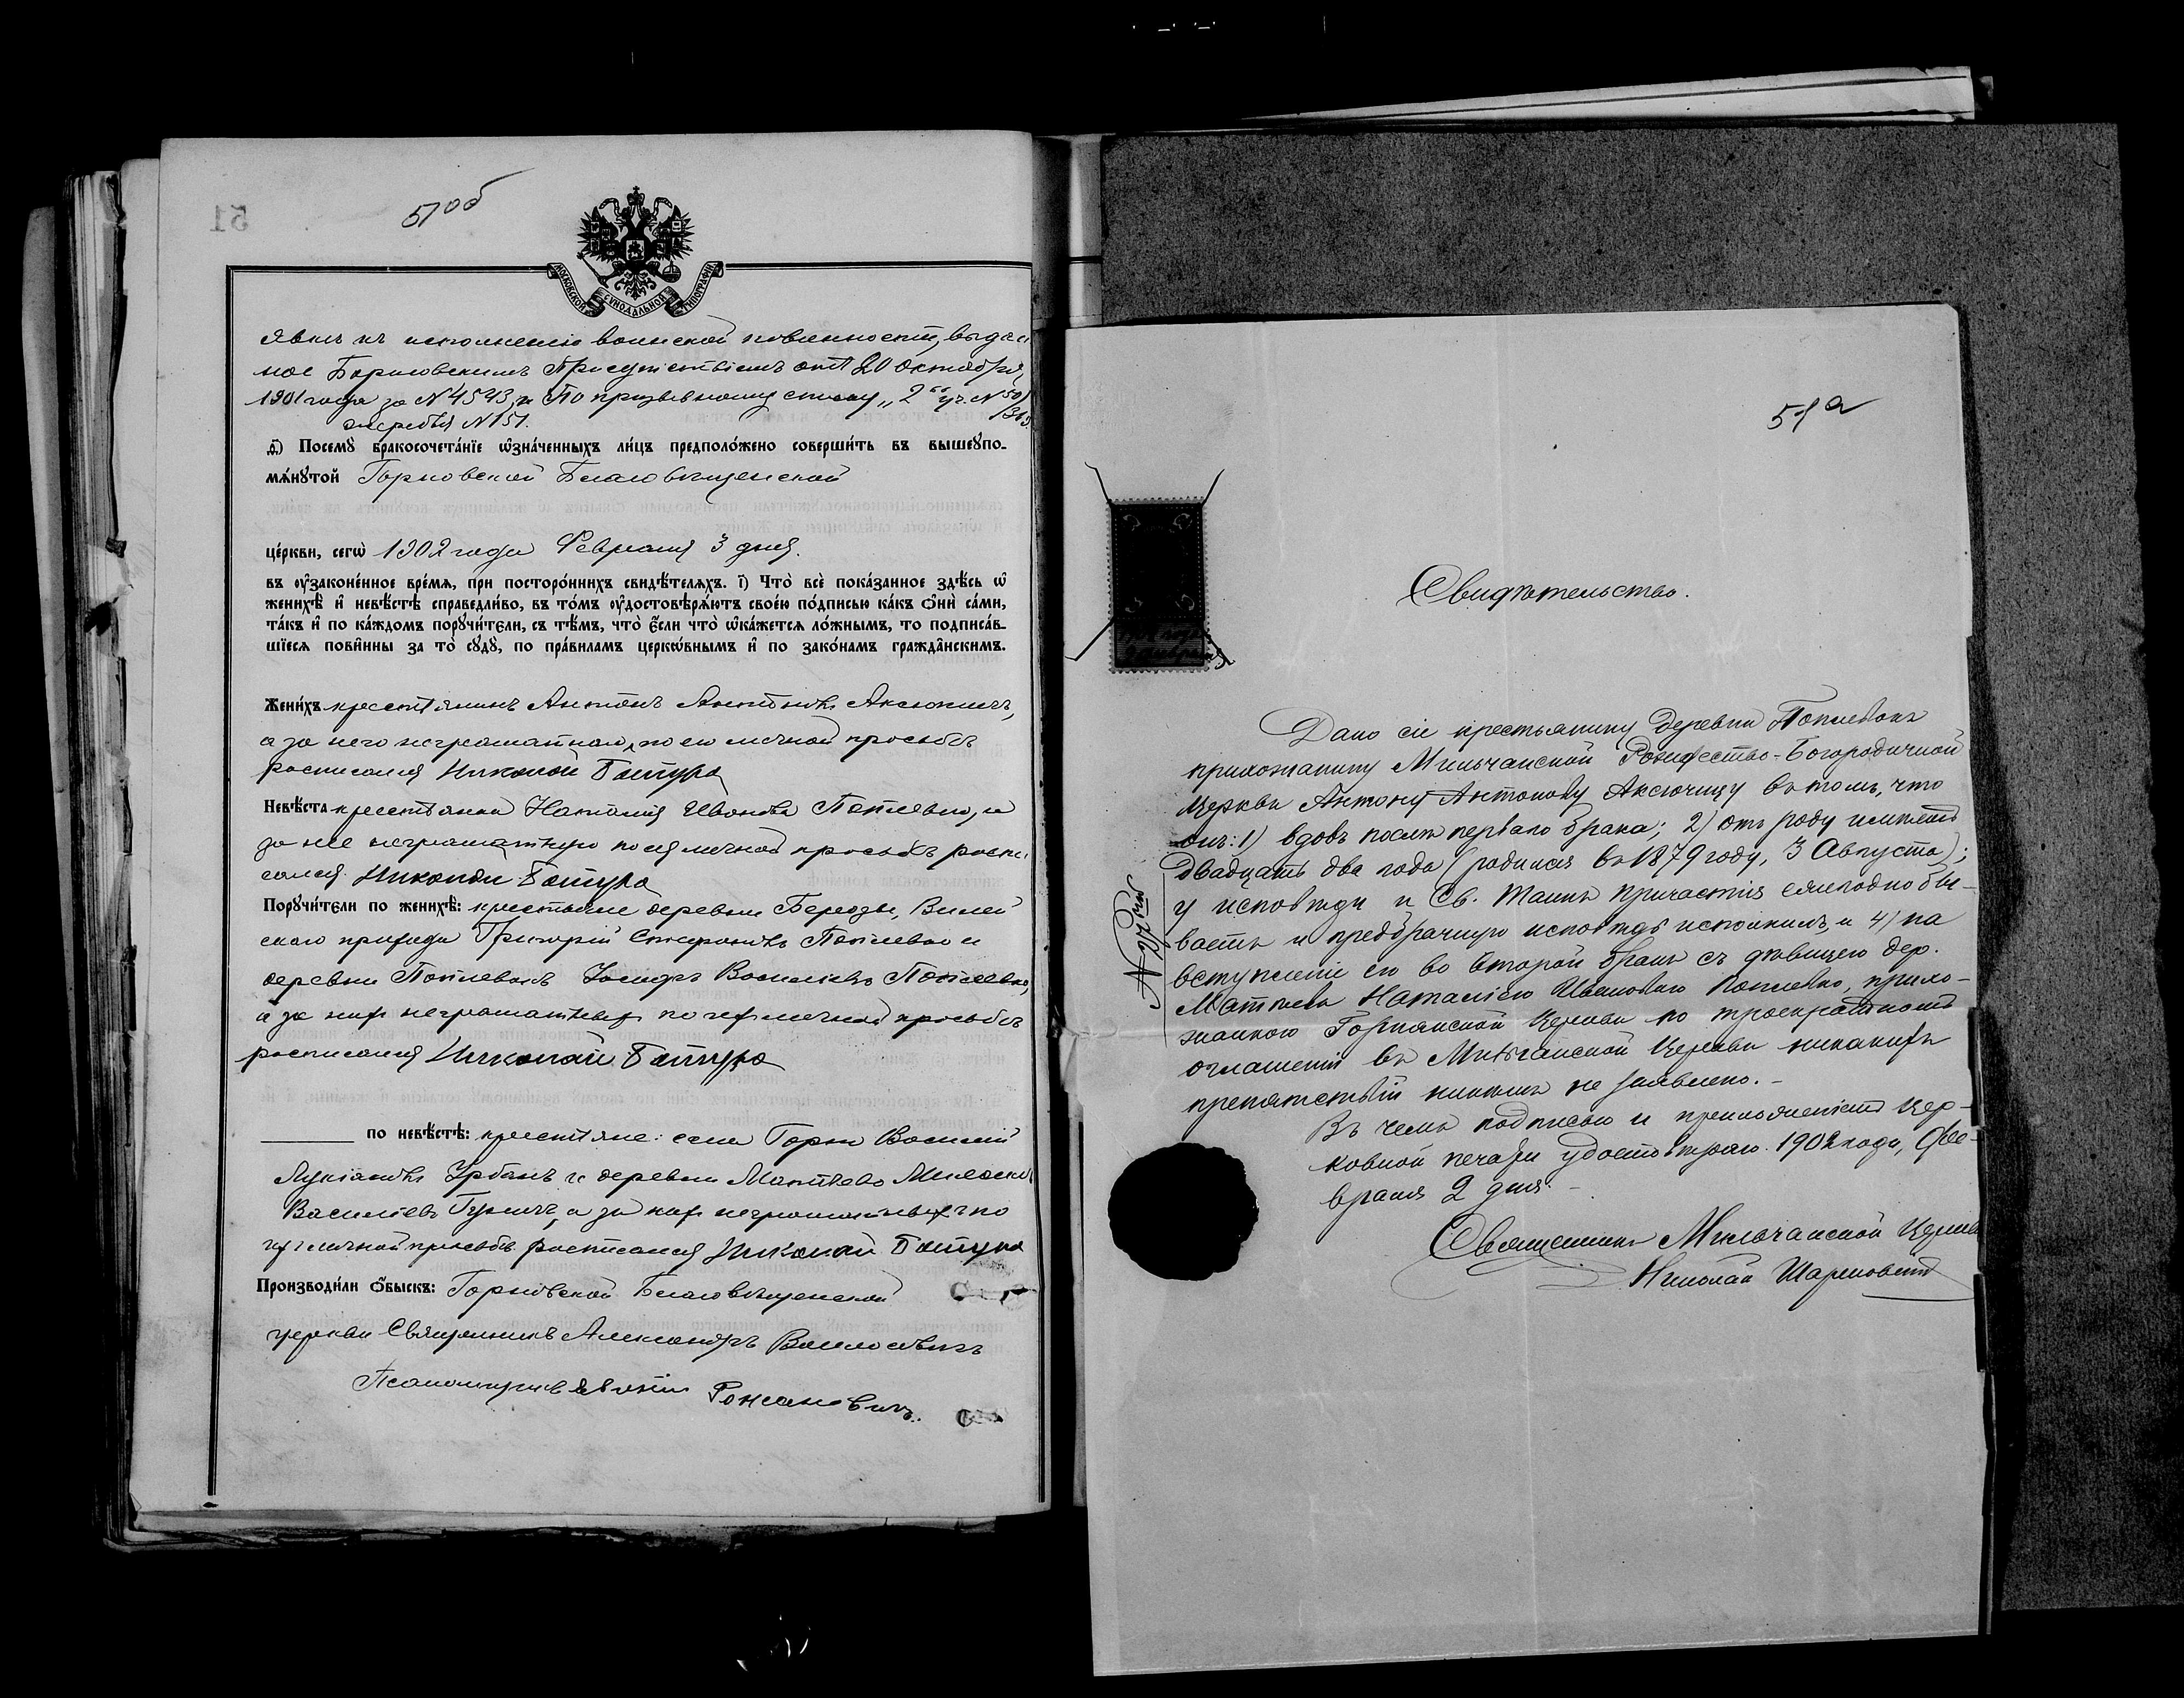 51
51об
МОСКОВСКОЙ СУНОДАЛЬНОЙ ТИПОГРАФІИ
явкѣ къ исполненію воинской повинности, выдан
ное Борисовскимъ Присутствіемъ отъ 20 Октября,
1901 года за № 4593, и По призывному списку „2 уч. № 50/
жеребья № 151.
Посемꙋ̀ бракосочета́нїе ѡ҆зна́ченныхъ ли́цъ предполо́жено соверши́ть въ вышеꙋпо-
мѧ́нꙋтой Горновской Благовѣщенской
це́ркви, сегѡ̀ 1902 года Февраля 3 дня.
въ ᲂу҆законе́нное вре́мѧ, при посторо́ннихъ свидѣ́телѧхъ. і҃) Что̀ всѐ пока́занное здѣ́сь ѡ҆
женихѣ̀ и҆ невѣ́стѣ справедли́во, въ то́мъ ᲂу҆достовѣрѧ́ютъ свое́ю по́дписью ка́къ ѻ҆нѝ са́ми,
та́къ и҆ по ка́ждомъ порꙋчи́тели, съ тѣ́мъ, что̀ є҆́сли что̀ ѡ҆ка́жетсѧ ло́жнымъ, то подписа́в-
шїесѧ пови́нны за то̀ сꙋдꙋ̀, по пра́виламъ церко́внымъ и҆ по зако́намъ гражда́нскимъ.
Жени́хъ крестьянинъ Антонъ Антоновъ Аксючицъ,
а за него неграмотнаго, по его личной просьбѣ
росписался Николай Батура
Невѣ́ста крестьянка Наталия Иванова Поплевко, а
за нее неграмотную по ея личной просьбѣ роспи
сался Николай Батура
Порꙋчи́тели по женихѣ̀: крестьяне деревни Березы, Вилей
скаго приходи Григорій Поплевко и
деревни Поплевокъ Іосифъ Васильевъ Поплевко,
а за нихъ неграмотныхъ по ихъ личной просьбѣ
росписался Николай Батура
по невѣ́стѣ: крестьяне: села Горно Василій
Лукіановъ Урбанъ и деревни Матвѣево
Васильевъ а за нихъ неграмотныхъ по
ихъ личной просьбѣ росписался Николай Батура
Производи́ли ѻ҆́быскъ: Горновской Благовѣщенской
церкви Священникъ Александръ
Псаломщикъ Рожановичъ.
51а
Свидѣтельство.
Дано сіе крестьянину деревни Поплевокъ
прихожанину Мильчанской Рождество-Богородичной
Церкви Антону Антонову Аксючицу въ томъ, что
онъ: 1) вдовъ послѣ перваго брака; 2) отъ роду имѣетъ
двадцать два года (родился въ 1879 году, 3 Августа);
у исповѣди и Св. Таинъ Причастія ежегодно бы-
ваетъ и предбрачную исповѣдь исполнилъ, и 4) на
вступленіе его во второй бракъ съ дѣвицею дер.
Матвѣева Наталіею Ивановою Поплевко, прихо-
жанкою Горнянской Церкви по троекратномъ
оглашеніи въ Мильчанской Церкви никакихъ
препятствій никѣмъ не заявлено. –
Въ чемъ подписью и приложеніемъ Цер-
ковной печати удостовѣряю. 1902 года, Фев-
враля 2 дня. –
Священникъ Мильчанской Церкви
Николай